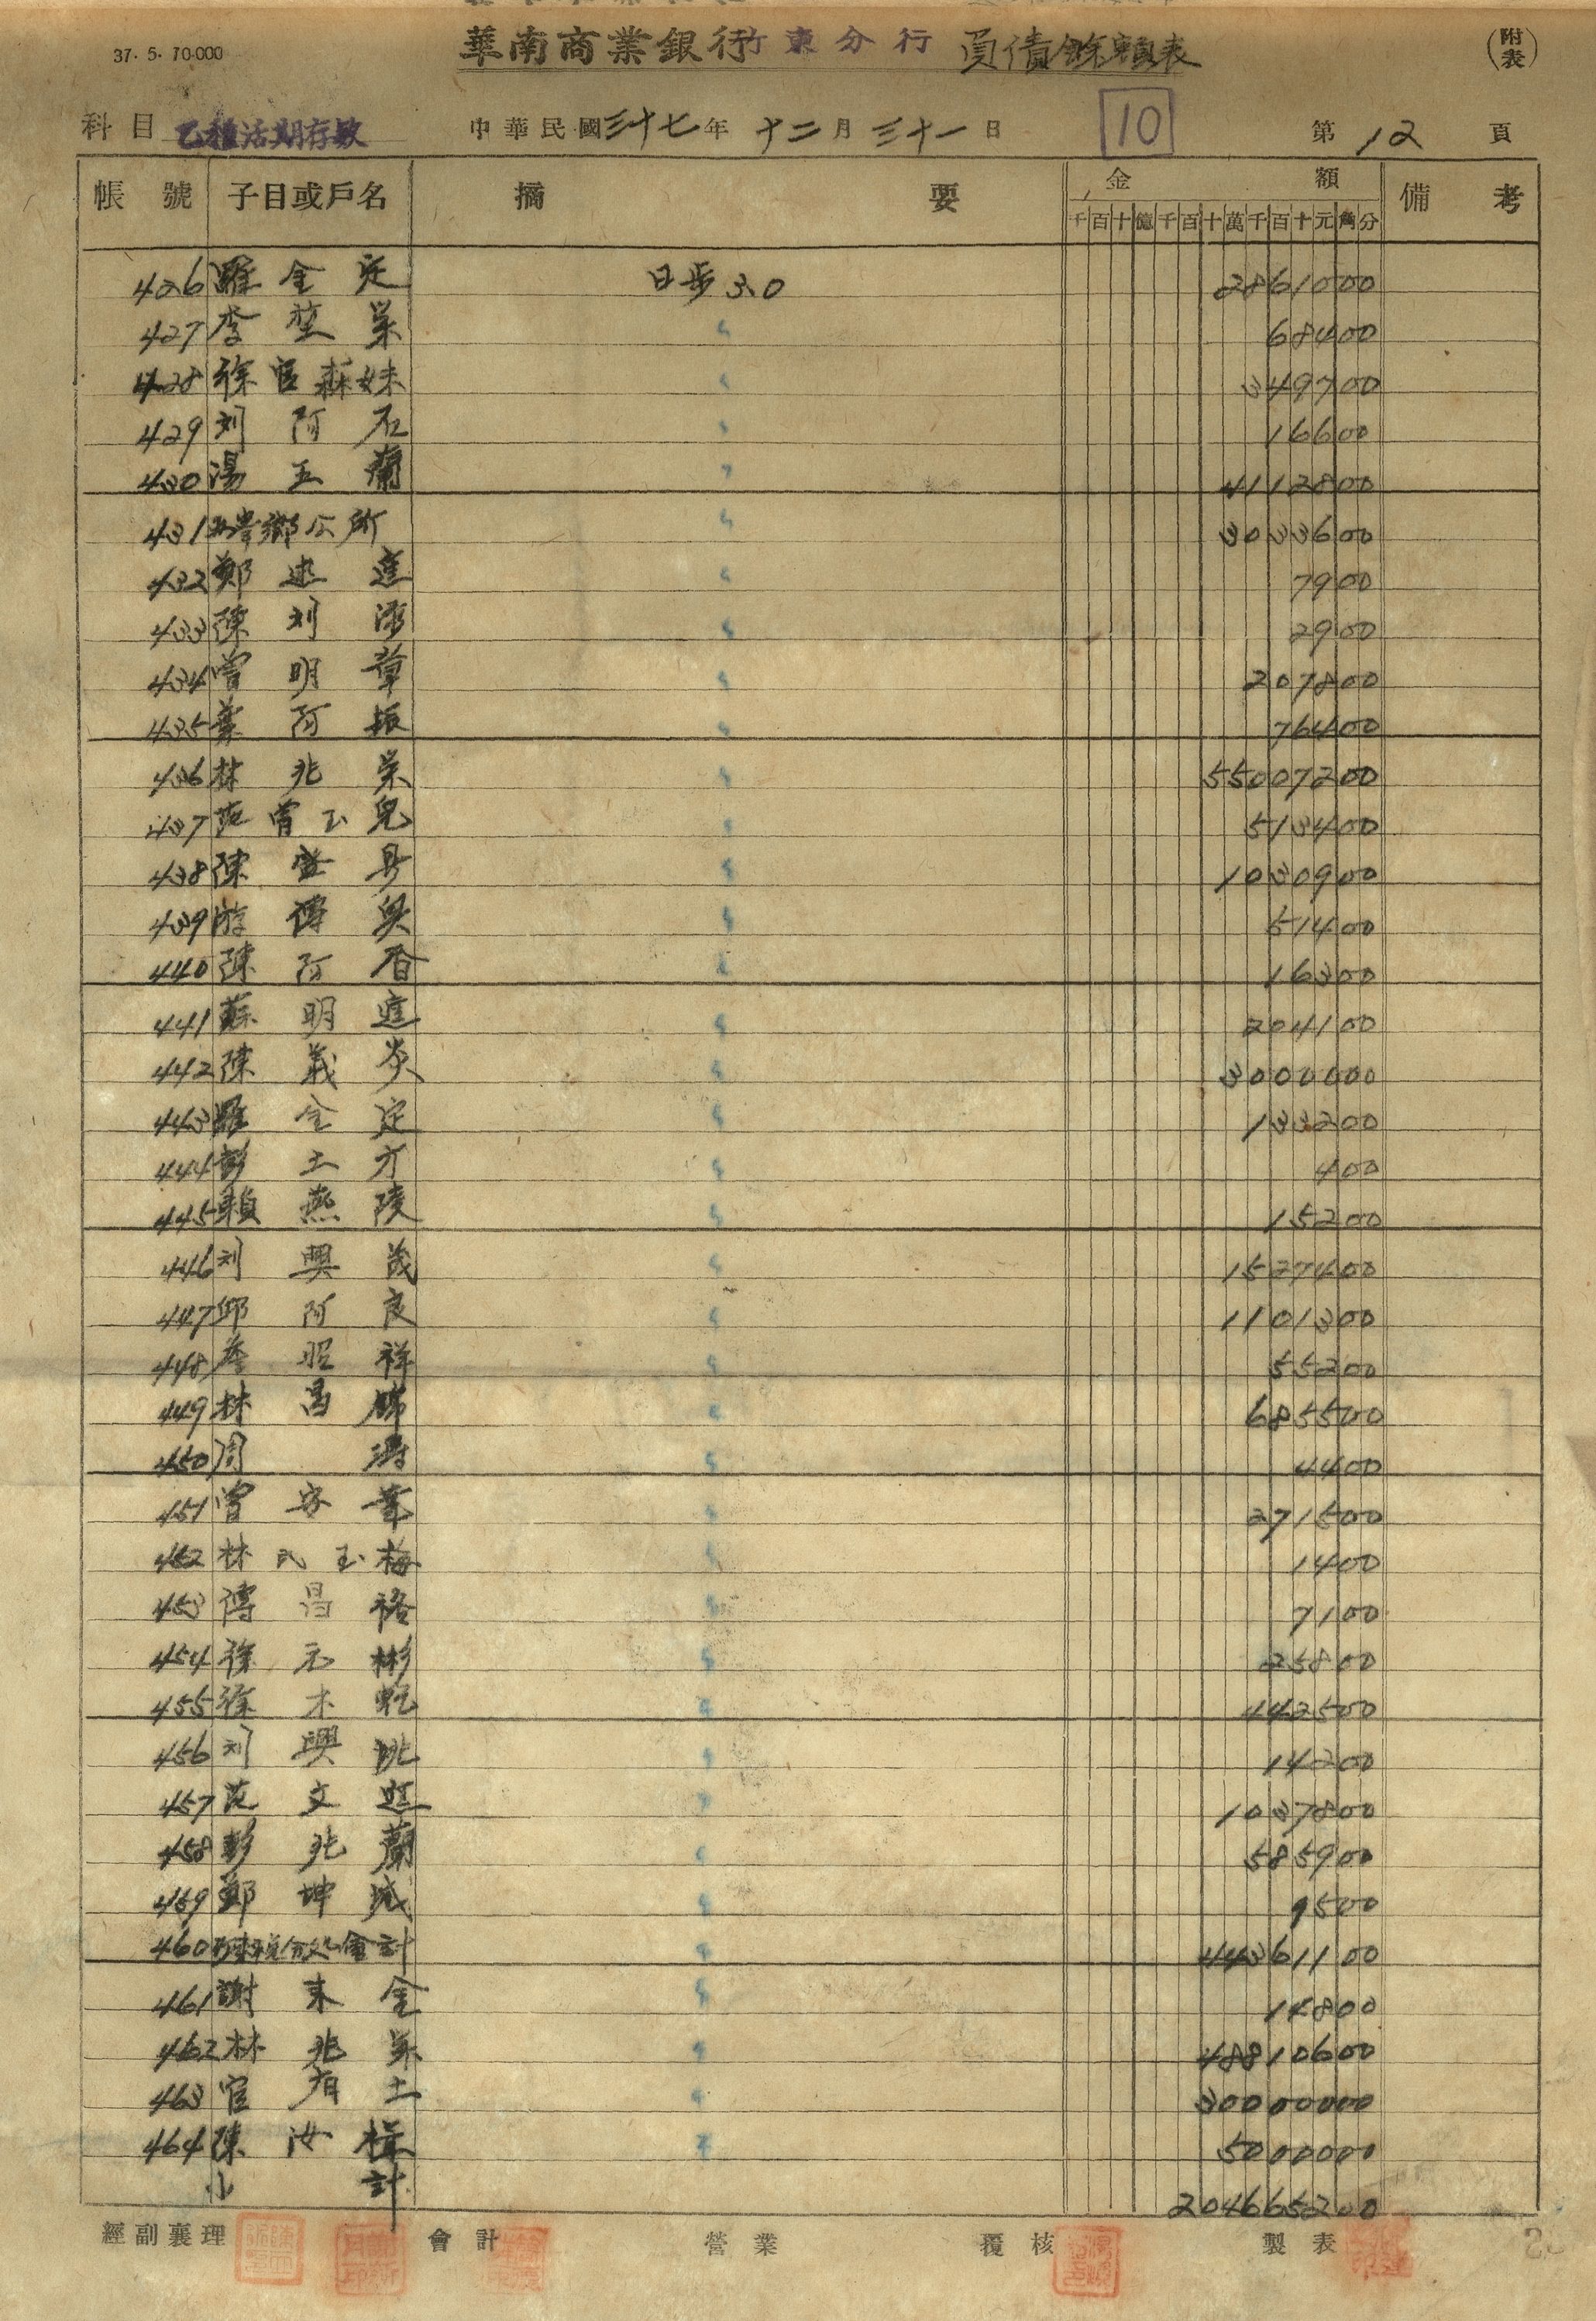 37. 5. 10.000
華南商業銀行竹東分行 負債餘額表 (附表)
科目 乙種活期存款 中華民國三十七年十二月三十一日 10 第12頁
帳號 子目或戶名 摘要 金額 備考
千百十億千百十萬千百十元角分
426 羅金定 日步3.0 2861000
427 李 榮 68400
428 徐官森妹 349700
429 刘阿石 16600
430 湯玉蘭 4112800
431 鄉公所 3033600
432 鄭 進 7900
433 陳刘添 2900
434 曾明章 207800
435 葉阿振 76400
436 林兆榮 55007200
437 范曾玉兒 513400
438 陳 1030900
439 游傳興 51400
440 陳阿香 16300
441 蘇明進 204100
442 陳義炎 3000000
443 羅金定 133200
444 彭土方 400
445 賴燕陵 15200
446 刘興茂 1527400
447 邱阿良 1101300
448 詹昭祥 55200
449 林昌 685500
450 周 4400
451 曾 271500
452 林氏玉梅 1400
453 傅昌裕 7100
454 徐元彬 25800
455 徐木乾 442500
456 刘興 14200
457 范文進 1037800
458 彭兆蘭 585900
459 鄭坤成 9500
460 分處會計 44361100
461 謝來金 14800
462 林兆榮 48810600
463 官有土 30000000
464 陳汝樑 5000000
小計 204665200
經副襄理 會計 營業 覆核 製表